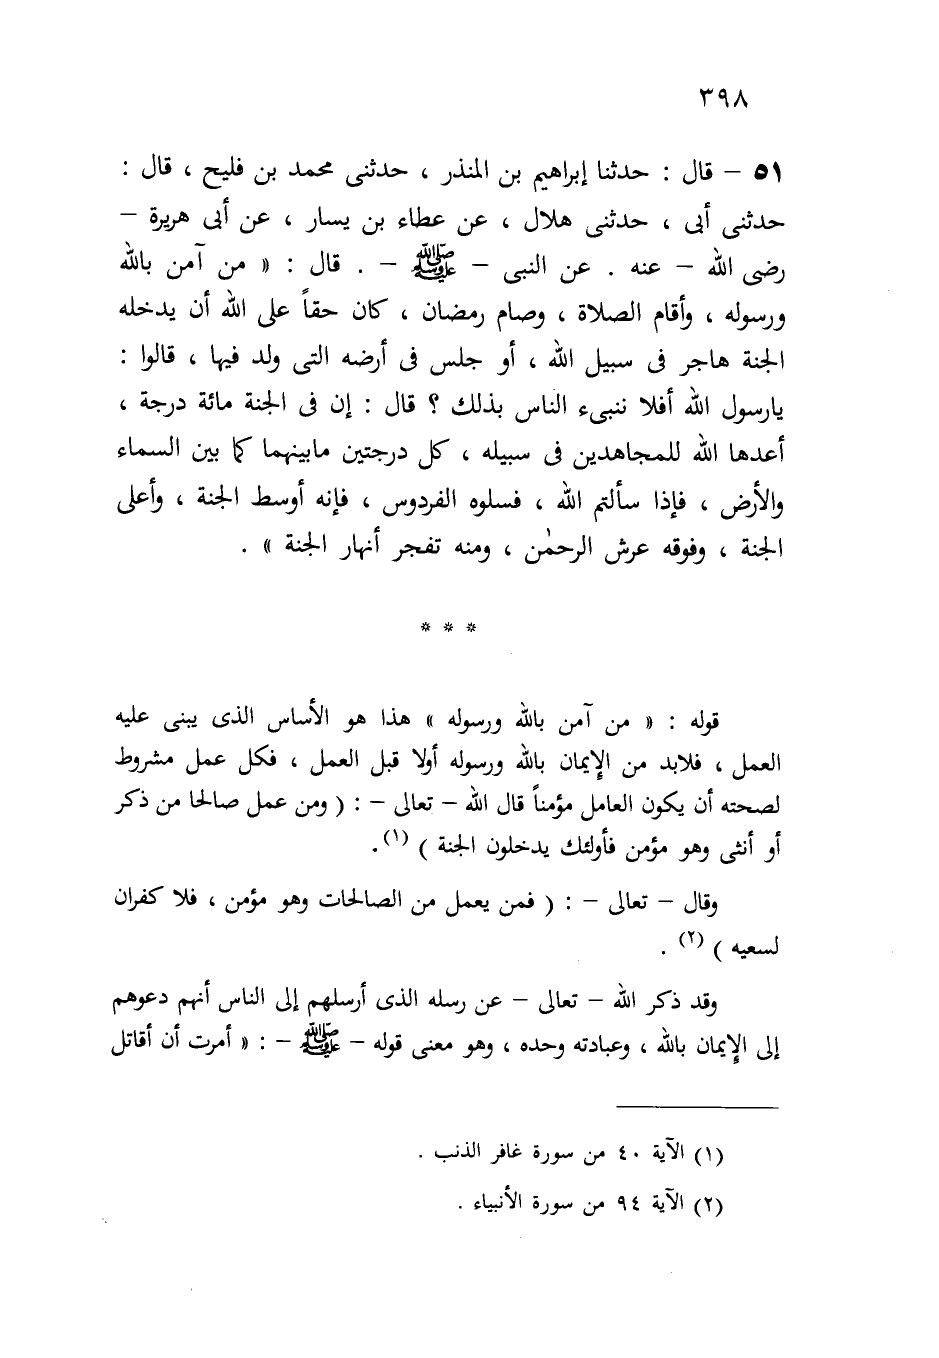 ٣٩٨
٥١ – قال : حدثنا إبراهيم بن المنذر ، حدثنى محمد بن فليح ، قال :
حدثنى أبى ، حدثنى هلال ، عن عطاء بن يسار ، عن أبى هريرة –
رضى الله – عنه . عن النبى – ﷺ – . قال : « من آمن بالله
ورسوله ، وأقام الصلاة ، وصام رمضان ، كان حقاً على الله أن يدخله
الجنة هاجر فى سبيل الله ، أو جلس فى أرضه التى ولد فيها ، قالوا :
يارسول الله أفلا ننبىء الناس بذلك ؟ قال : إن فى الجنة مائة درجة ،
أعدها الله للمجاهدين فى سبيله ، كل درجتين مابينهما كما بين السماء
والأرض ، فإذا سألتم الله ، فسلوه الفردوس ، فإنه أوسط الجنة ، وأعلى
الجنة ، وفوقه عرش الرحمٰن ، ومنه تفجر أنهار الجنة » .
* * *
قوله : « من آمن بالله ورسوله » هذا هو الأساس الذى يبنى عليه
العمل ، فلابد من الإيمان بالله ورسوله أولا قبل العمل ، فكل عمل مشروط
لصحته أن يكون العامل مؤمناً قال الله – تعالى – : ( ومن عمل صالحا من ذكر
أو أنثى وهو مؤمن فأولئك يدخلون الجنة ) (١).
وقال – تعالى – : ( فمن يعمل من الصالحات وهو مؤمن ، فلا كفران
لسعيه ) (٢) .
وقد ذكر الله – تعالى – عن رسله الذى أرسلهم إلى الناس أنهم دعوهم
إلى الإيمان بالله ، وعبادته وحده ، وهو معنى قوله – ﷺ – : « أمرت أن أقاتل
(١) الآية ٤٠ من سورة غافر الذنب .
(٢) الآية ٩٤ من سورة الأنبياء .